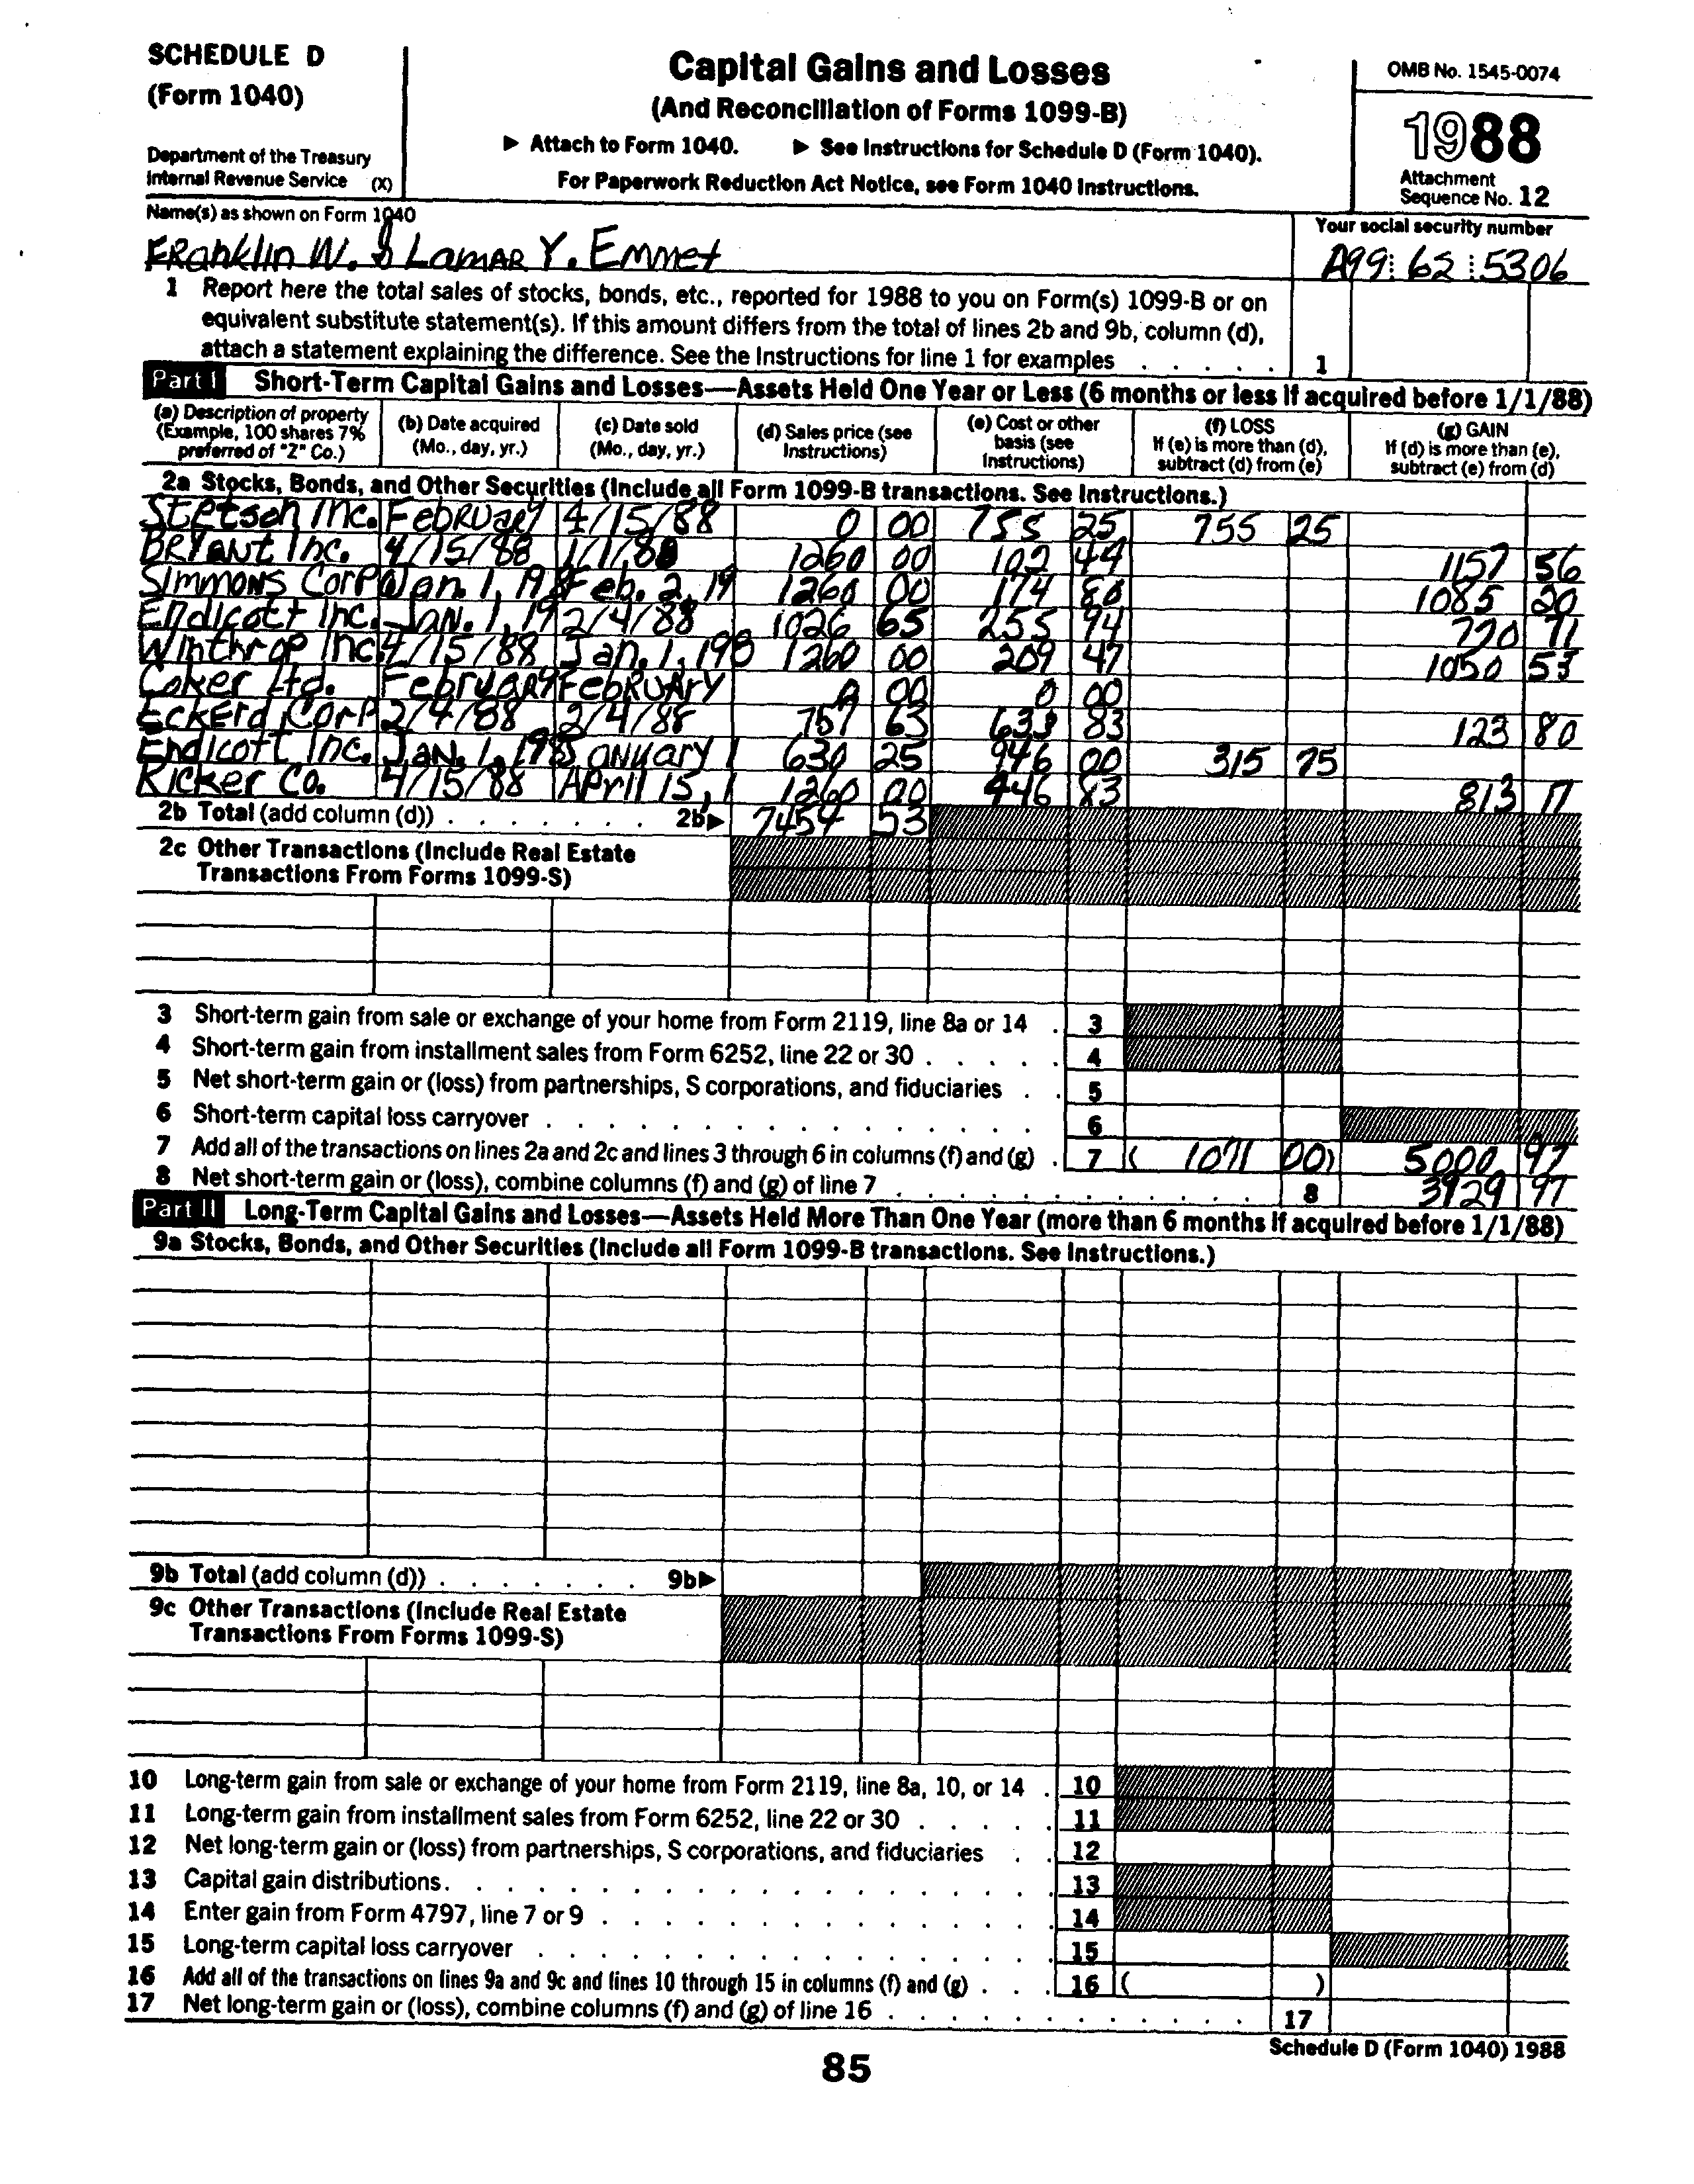 SCHEDULE D
(Form 1040)
Department of the Treasury
Internal Revenue Service (X)
Capital Gains and Losses
(And Reconciliation of Forms 1099-B)
▶ Attach to Form 1040. ▶ See Instructions for Schedule D (Form 1040).
For Paperwork Reduction Act Notice, see Form 1040 Instructions.
OMB No. 1545-0074
1988
Attachment
Sequence No. 12
Name(s) as shown on Form 1040
Franklin W. & Lamar Y. Emmet
Your social security number
A99 62 5306
1 Report here the total sales of stocks, bonds, etc., reported for 1988 to you on Form(s) 1099-B or on
equivalent substitute statement(s). If this amount differs from the total of lines 2b and 9b, column (d),
attach a statement explaining the difference. See the Instructions for line 1 for examples . . . . . 1
Part I Short-Term Capital Gains and Losses—Assets Held One Year or Less (6 months or less if acquired before 1/1/88)
(a) Description of property (Example, 100 shares 7% preferred of "Z" Co.)
(b) Date acquired (Mo., day, yr.)
(c) Date sold (Mo., day, yr.)
(d) Sales price (see Instructions)
(e) Cost or other basis (see Instructions)
(f) LOSS If (e) is more than (d), subtract (d) from (e)
(g) GAIN If (d) is more than (e), subtract (e) from (d)
2a Stocks, Bonds, and Other Securities (Include all Form 1099-B transactions. See Instructions.)
Stetson Inc. February 4/15/88 0 00 755 25 755 25
Bryant Inc. 4/15/88 1/1/88 1260 00 102 44 1157 56
Simmons Corp Jan. 1, 198 Feb. 2, 19 1260 00 174 80 1085 20
Endicott Inc. Jan. 1, 19 2/4/88 1026 65 255 94 770 71
Winthrop Inc. 4/15/88 Jan. 1, 198 1260 00 209 47 1050 53
Coker Ltd. February February 0 00 0 00
Eckerd Corp 2/4/88 2/4/88 757 63 633 83 123 80
Endicott Inc. Jan. 1, 198 January 1 630 25 946 00 315 75
Ricker Co. 4/15/88 April 15, 1 1260 00 446 83 813 17
2b Total (add column (d)) . . . . . . . 2b▶ 7454 53
2c Other Transactions (Include Real Estate
Transactions From Forms 1099-S)
3 Short-term gain from sale or exchange of your home from Form 2119, line 8a or 14 . 3
4 Short-term gain from installment sales from Form 6252, line 22 or 30 . . . . . 4
5 Net short-term gain or (loss) from partnerships, S corporations, and fiduciaries . . 5
6 Short-term capital loss carryover . . . . . . . . . . . . . . . 6
7 Add all of the transactions on lines 2a and 2c and lines 3 through 6 in columns (f) and (g) . 7 ( 1071 00) 5000 97
8 Net short-term gain or (loss), combine columns (f) and (g) of line 7 . . . . . . . . . . . . 8 3929 97
Part II Long-Term Capital Gains and Losses—Assets Held More Than One Year (more than 6 months if acquired before 1/1/88)
9a Stocks, Bonds, and Other Securities (Include all Form 1099-B transactions. See Instructions.)
9b Total (add column (d)) . . . . . . . 9b▶
9c Other Transactions (Include Real Estate
Transactions From Forms 1099-S)
10 Long-term gain from sale or exchange of your home from Form 2119, line 8a, 10, or 14 . 10
11 Long-term gain from installment sales from Form 6252, line 22 or 30 . . . . . 11
12 Net long-term gain or (loss) from partnerships, S corporations, and fiduciaries . . 12
13 Capital gain distributions . . . . . . . . . . . . . . . . . . . 13
14 Enter gain from Form 4797, line 7 or 9 . . . . . . . . . . . . . . 14
15 Long-term capital loss carryover . . . . . . . . . . . . . . . . 15
16 Add all of the transactions on lines 9a and 9c and lines 10 through 15 in columns (f) and (g) . . . 16 ( )
17 Net long-term gain or (loss), combine columns (f) and (g) of line 16 . . . . . . . . . . . . 17
Schedule D (Form 1040) 1988
85